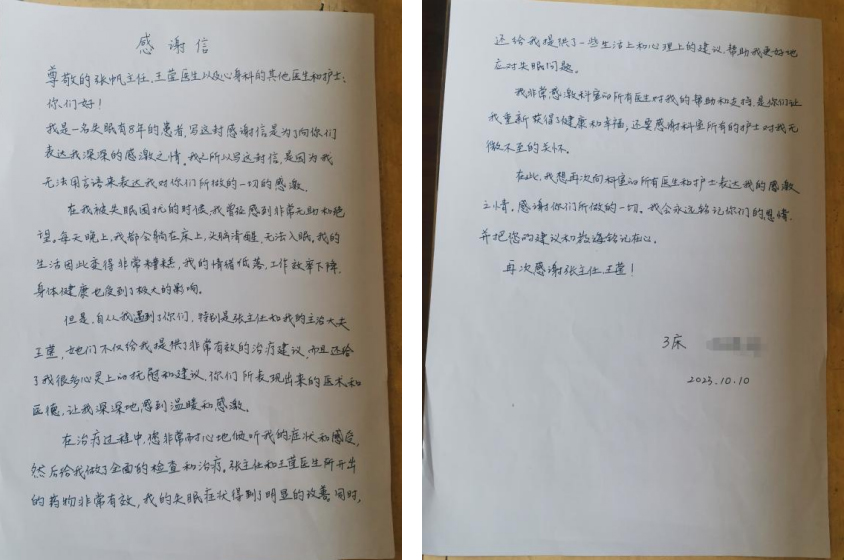 感谢信
尊敬的张帆主任、王萱医生以及心身科的其他医生和护士:
你们好!
我是一名失眠有8年的患者,写这封感谢信是为了向你们
表达我深深的感激之情。我之所以写这封信,是因为我
无法用言语来表达我对你们所做的一切的感激。
在我被失眠困扰的时候,我曾经感到非常无助和绝
望。每天晚上,我都会躺在床上,头脑清醒,无法入眠。我的
生活因此变得非常糟糕,我的情绪低落,工作效率下降,
身体健康也受到了极大的影响。
但是,自从我遇到了你们,特别是张主任和我的主治大夫
王萱,她们不仅给我提供了非常有效的治疗建议,而且还给
了我很多心灵上的抚慰和建议。你们所表现出来的医术和
医德,让我深深地感到温暖和感激。
在治疗过程中,您非常耐心地倾听我的症状和感受,
然后给我做了全面的检查和治疗。张主任和王萱医生所开出
的药物非常有效,我的失眠症状得到了明显的改善。同时,
还给我提供了一些生活上和心理上的建议,帮助我更好地
应对失眠问题。
我非常感激科室的所有医生对我的帮助和支持,是你们让
我重新获得了健康和幸福,还要感谢科室所有的护士对我无
微不至的关怀。
在此,我想再次向科室的所有医生和护士表达我的感激
之情。感谢你们所做的一切。我会永远铭记你们的恩情,
并把您的建议和教诲铭记在心。
再次感谢张主任、王萱!
3床
2023.10.10